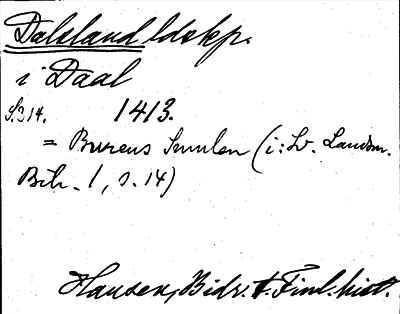 Dalsland ldskp.
i Daal
S. 314. 1413.
= Bureus Sumlen (i: Sv. Landsm.
Bih. 1, s. 14)
Hausen, Bidr. t. Finl. hist.